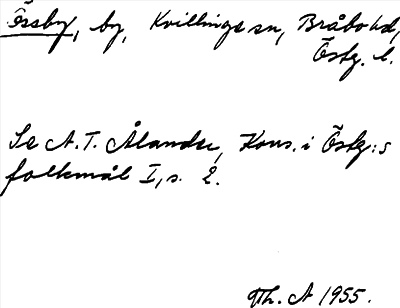 Örsby, by, Kvillinge sn, Bråbo hd,
Östg. l.
Se A. T. Ålander, Kons. i Östg:s
folkmål I, s. 2.
Th. A 1955.